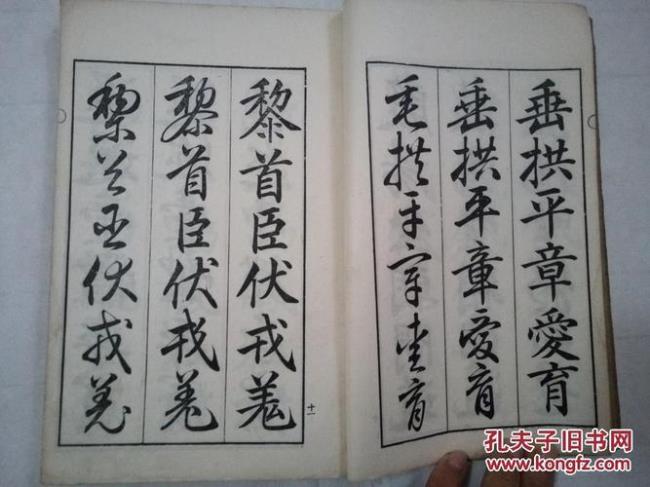 垂拱平章愛育
垂拱平章愛育
垂拱平章愛育
黎首臣伏戎羌
黎首臣伏戎羌
黎首臣伏戎羌
十一
孔夫子旧书网
www.kongfz.com